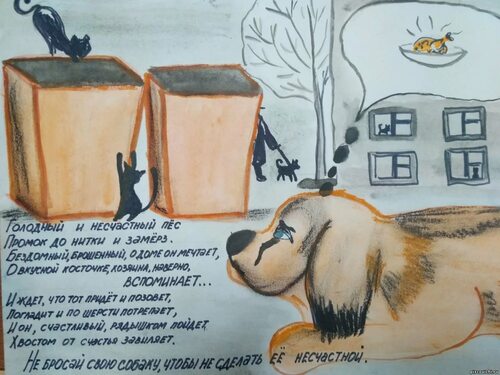 Голодный и несчастный пёс
Промок до нитки и замёрз.
Бездомный, брошенный, о доме он мечтает,
О вкусной косточке, хозяина, наверно,
вспоминает...
И ждет, что тот придёт и позовет,
Погладит и по шерсти потрепает,
И он, счастливый, рядышком пойдет,
Хвостом от счастья завиляет.
Не бросай свою собаку, чтобы не сделать её несчастной.